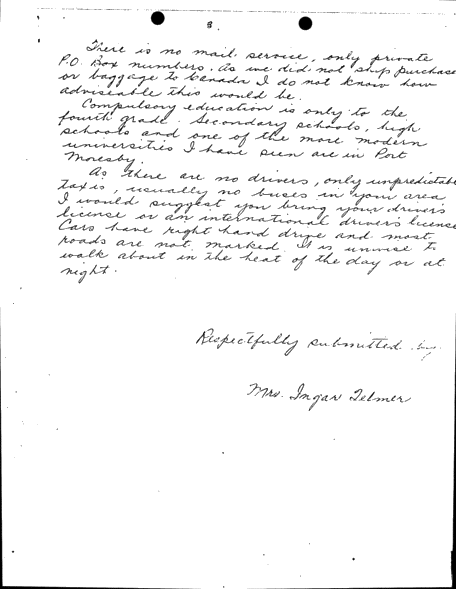 8.
There is no mail service, only private
P.O. Box numbers. As we did not ship purchase
or baggage to Canada I do not know how
adviseable this would be.
Compulsory education is only to the
fourth grade. Secondary schools, high
schools and one of the more modern
universities I have seen are in Port
Moresby.
As there are no drivers, only unpredictabl
taxis, usually no buses in your area
I would suggest you bring your driver's
license or an international driver's licence
Cars have right hand drive and most
roads are not marked. It is unwise to
walk about in the heat of the day or at
night.
Respectfully submitted by
Mrs. Ingar Telmer